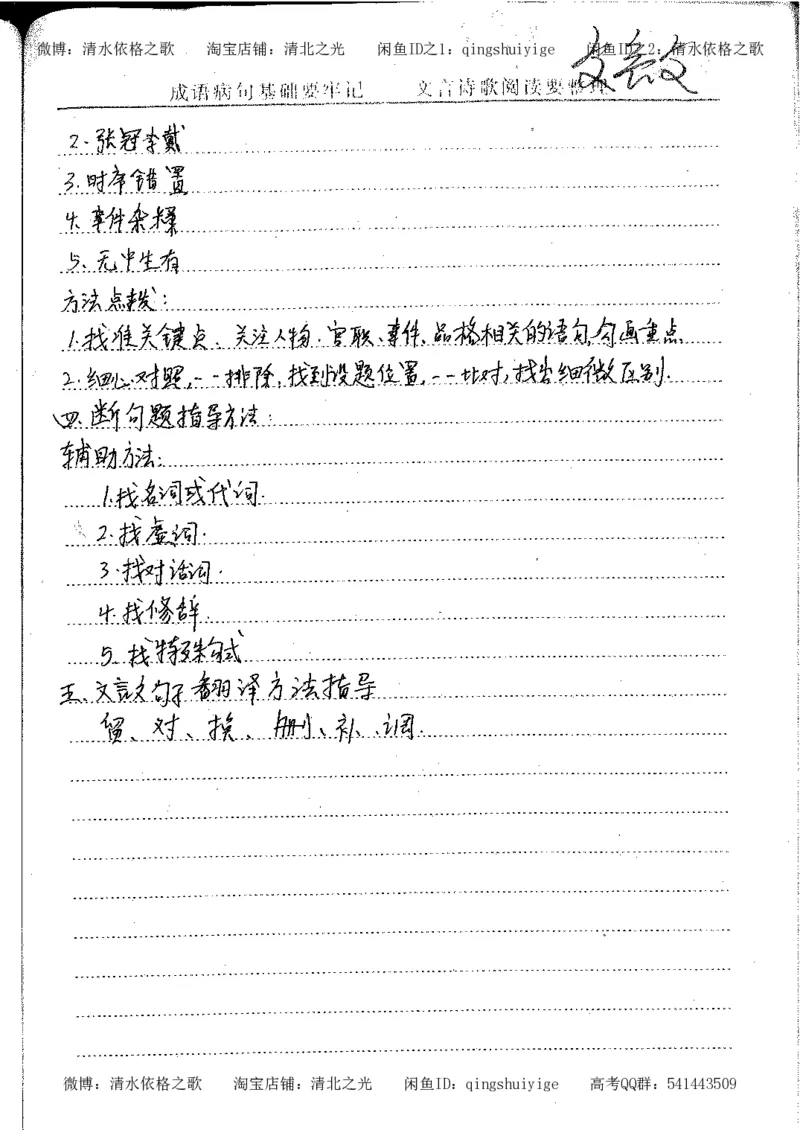 微博：清水依格之歌 淘宝店铺：清北之光 闲鱼ID之1：qingshuiyige 闲鱼ID之2：清水依格之歌
文言文
成语病句基础要牢记 文言诗歌阅读要整理
2.张冠李戴
3.时序错置
4.事件杂糅
5.无中生有
方法点拨：
1.找准关键点、关注人物、官职、事件、品格相关的语句,勾画重点.
2.细心对照,一一排除,找到设题位置,一一比对,找出细微区别.
四.断句题指导方法：
辅助方法：
1.找名词或代词.
2.找虚词.
3.找对话词.
4.找修辞.
5.找特殊句式
五.文言文句子翻译方法指导
留、对、换、删、补、调.
微博：清水依格之歌 淘宝店铺：清北之光 闲鱼ID：qingshuiyige 高考QQ群：541443509